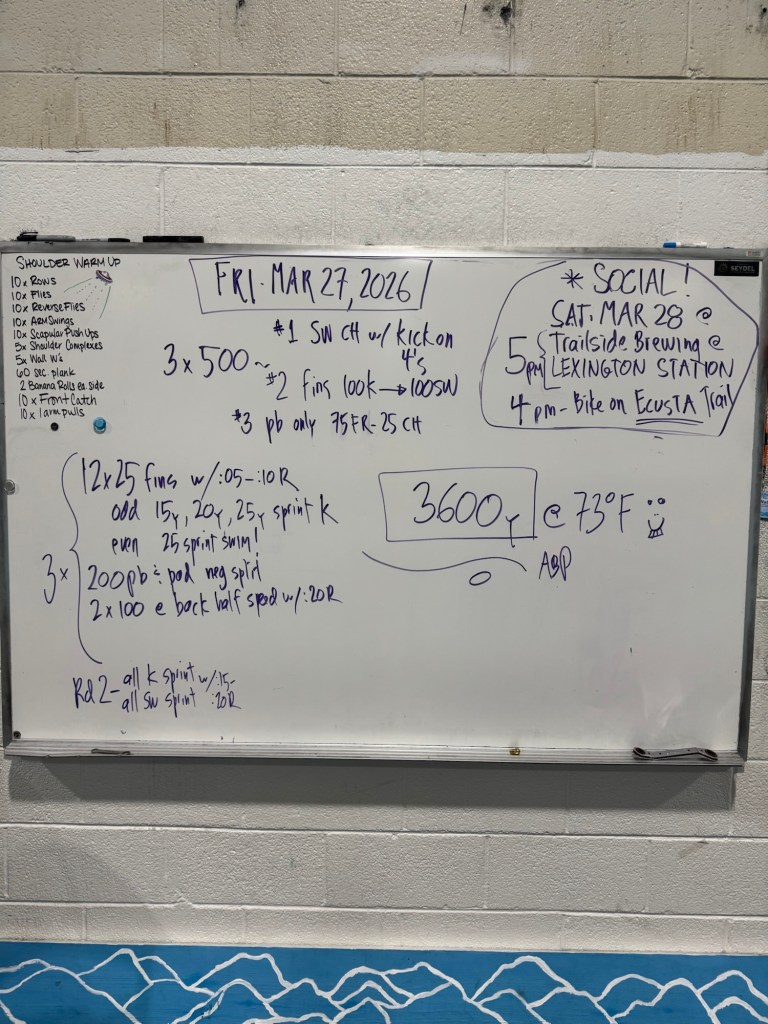 SHOULDER WARM UP
10x Rows
10x Flies
10x Reverse Flies
10x Arm Swings
10x Scapular Push Ups
5x Shoulder Complexes
5x Wall W's
60 sec. plank
2 Banana Rolls ea. side
10 x Front Catch
10 x 1 arm pulls
FRI. MAR 27, 2026
3 x 500 ~
#1 SW CH w/ kick on
4's
#2 fins 100k → 100SW
#3 pb only 75 FR - 25 CH
* SOCIAL!
SAT. MAR 28 @
5pm { Trailside Brewing @
LEXINGTON STATION
4 pm - Bike on ECUSTA Trail
SEYDEL
3x
12x25 fins w/ :05-:10 R
odd 15y, 20y, 25y sprint k
even 25 sprint swim!
200 pb & pad neg split
2 x 100 e back half sped w/ :20R
Rd 2 - all k sprint w/ :15-
all sw sprint :20R
3600y @ 73°F
ABP